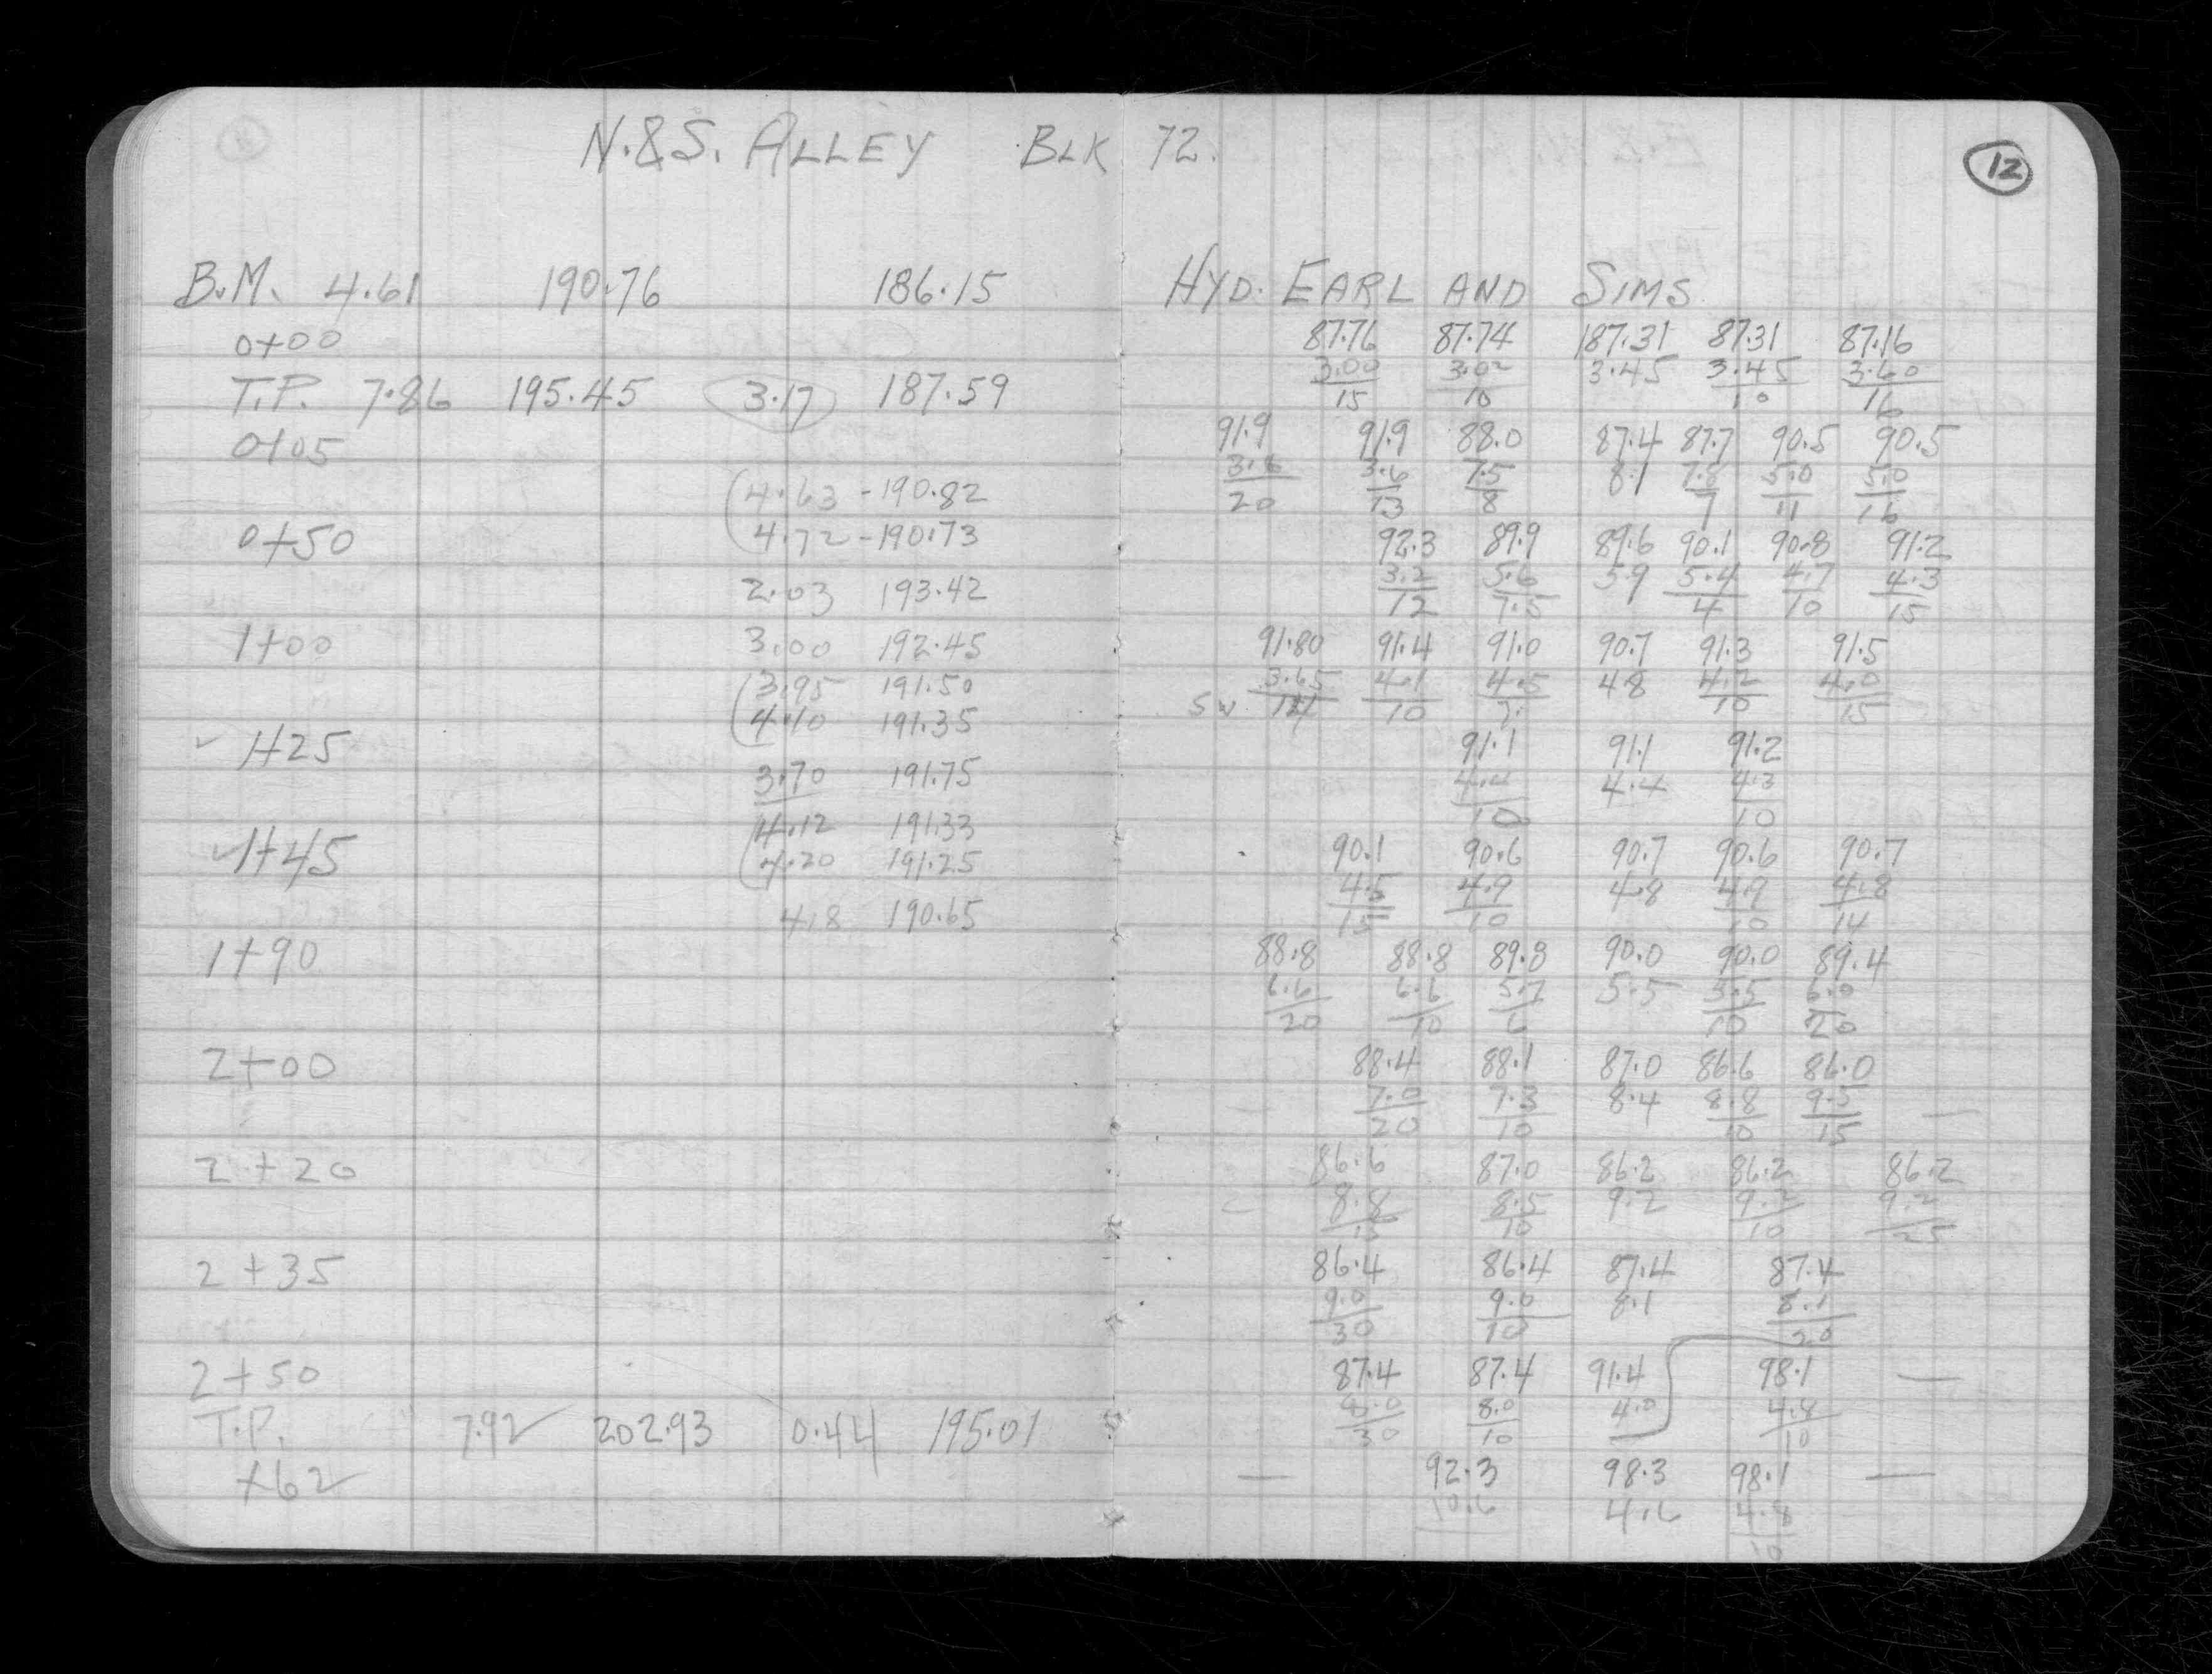 N.&S. ALLEY BLK 72.
12
B.M. 4.61 190.76 186.15 HYD. EARL AND SIMS
0+00 87.76 87.74 187.31 87.31 87.16
3.00 3.02 3.45 3.45 3.60
T.P. 7.86 195.45 3.17 187.59 15 10 10 16
0+05 91.9 91.9 88.0 87.4 87.7 90.5 90.5
3.6 3.6 7.5 8.1 7.8 5.0 5.0
4.63 - 190.82 20 13 8 7 11 16
0+50 4.72 - 190.73 92.3 89.9 89.6 90.1 90.8 91.2
3.2 5.6 5.9 5.4 4.7 4.3
2.03 193.42 12 7.5 4 10 15
1+00 3.00 192.45 91.80 91.4 91.0 90.7 91.3 91.5
3.95 191.50 3.65 4.1 4.5 4.8 4.2 4.0
4.10 191.35 SW 14 10 7. 10 15
1+25 91.1 91.1 91.2
3.70 191.75 4.4 4.4 4.3
4.12 191.33 10 10
1+45 4.20 191.25 90.1 90.6 90.7 90.6 90.7
4.5 4.9 4.8 4.9 4.8
4.8 190.65 15 10 10 14
1+90 88.8 88.8 89.8 90.0 90.0 89.4
6.6 6.6 5.7 5.5 5.5 6.0
20 10 6 10 20
2+00 88.4 88.1 87.0 86.6 86.0
7.0 7.3 8.4 8.8 9.5
20 10 10 15
2+20 86.6 87.0 86.2 86.2 86.2
8.8 8.5 9.2 9.2 9.2
15 10 10 25
2+35 86.4 86.4 87.4 87.4
9.0 9.0 8.1 8.1
30 10 20
2+50 87.4 87.4 91.4 98.1
8.0 8.0 4.0 4.8
T.P. 7.92 202.93 0.44 195.01 30 10 10
+62 92.3 98.3 98.1
10.6 4.6 4.8
10